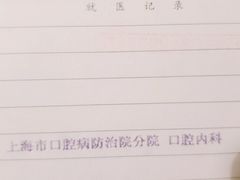 就医记录
上海市口腔病防治院分院 口腔内科